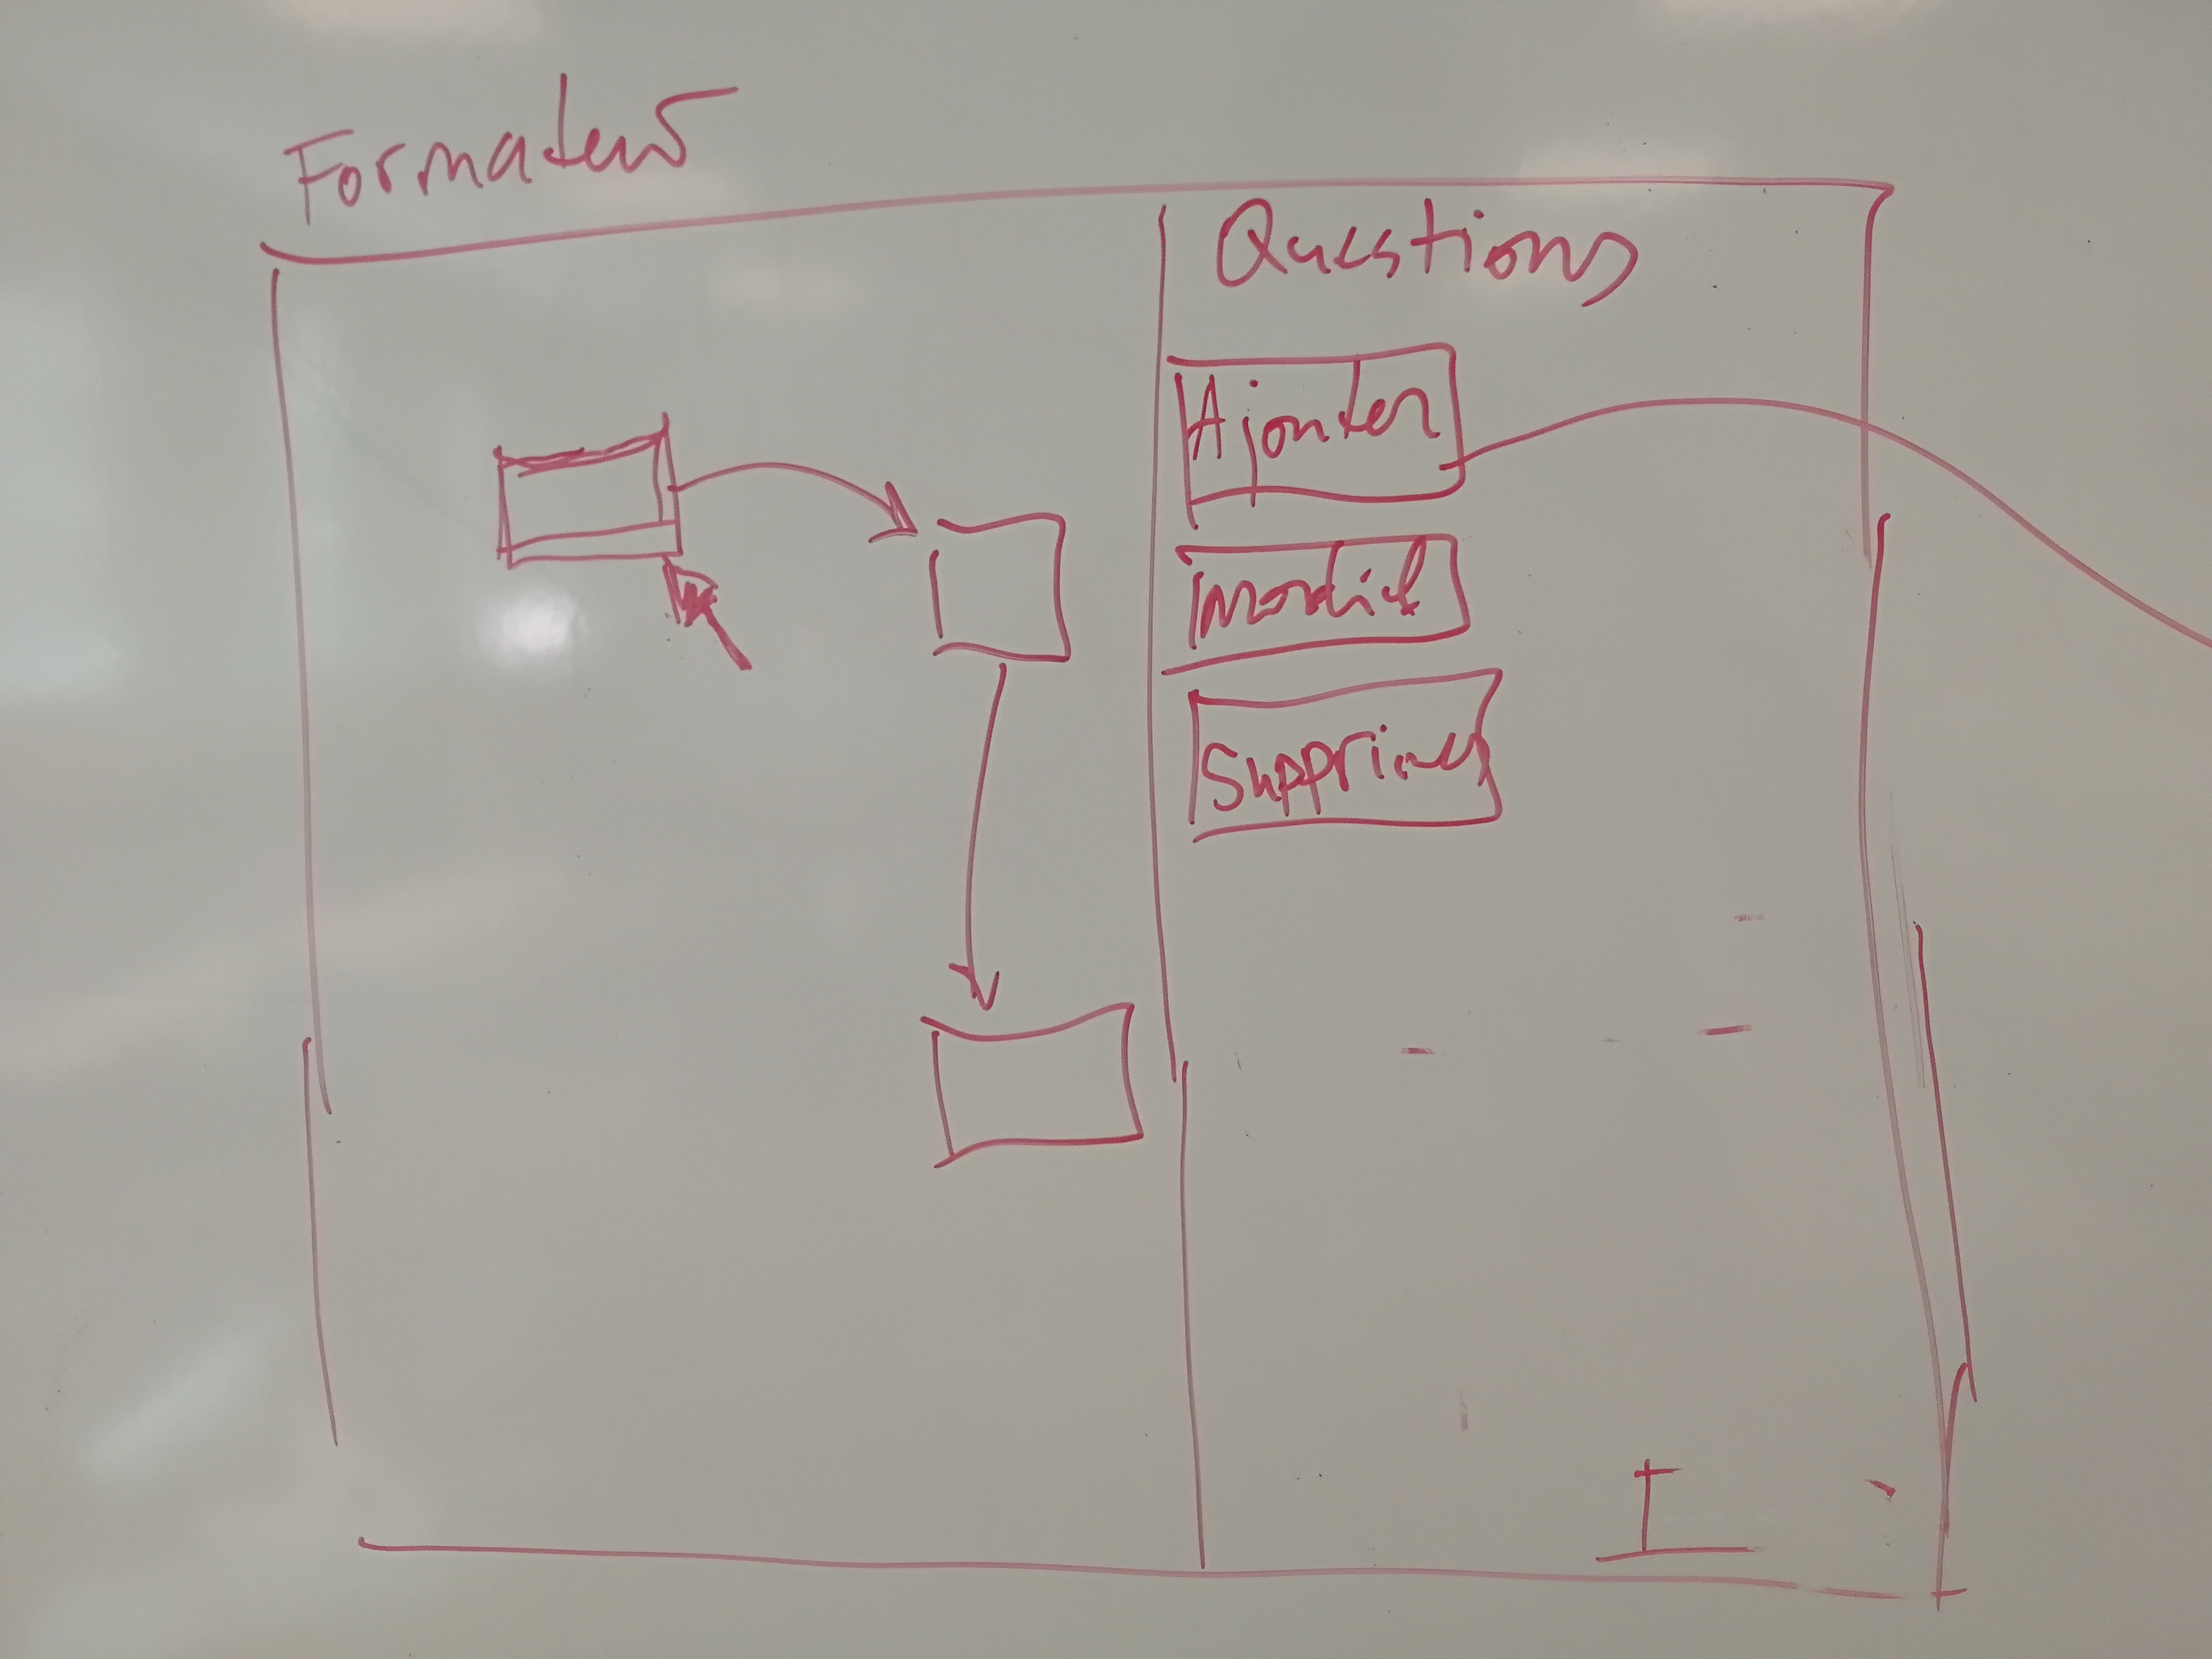 Formateur
Questions
Ajouter
modif
Supprimer